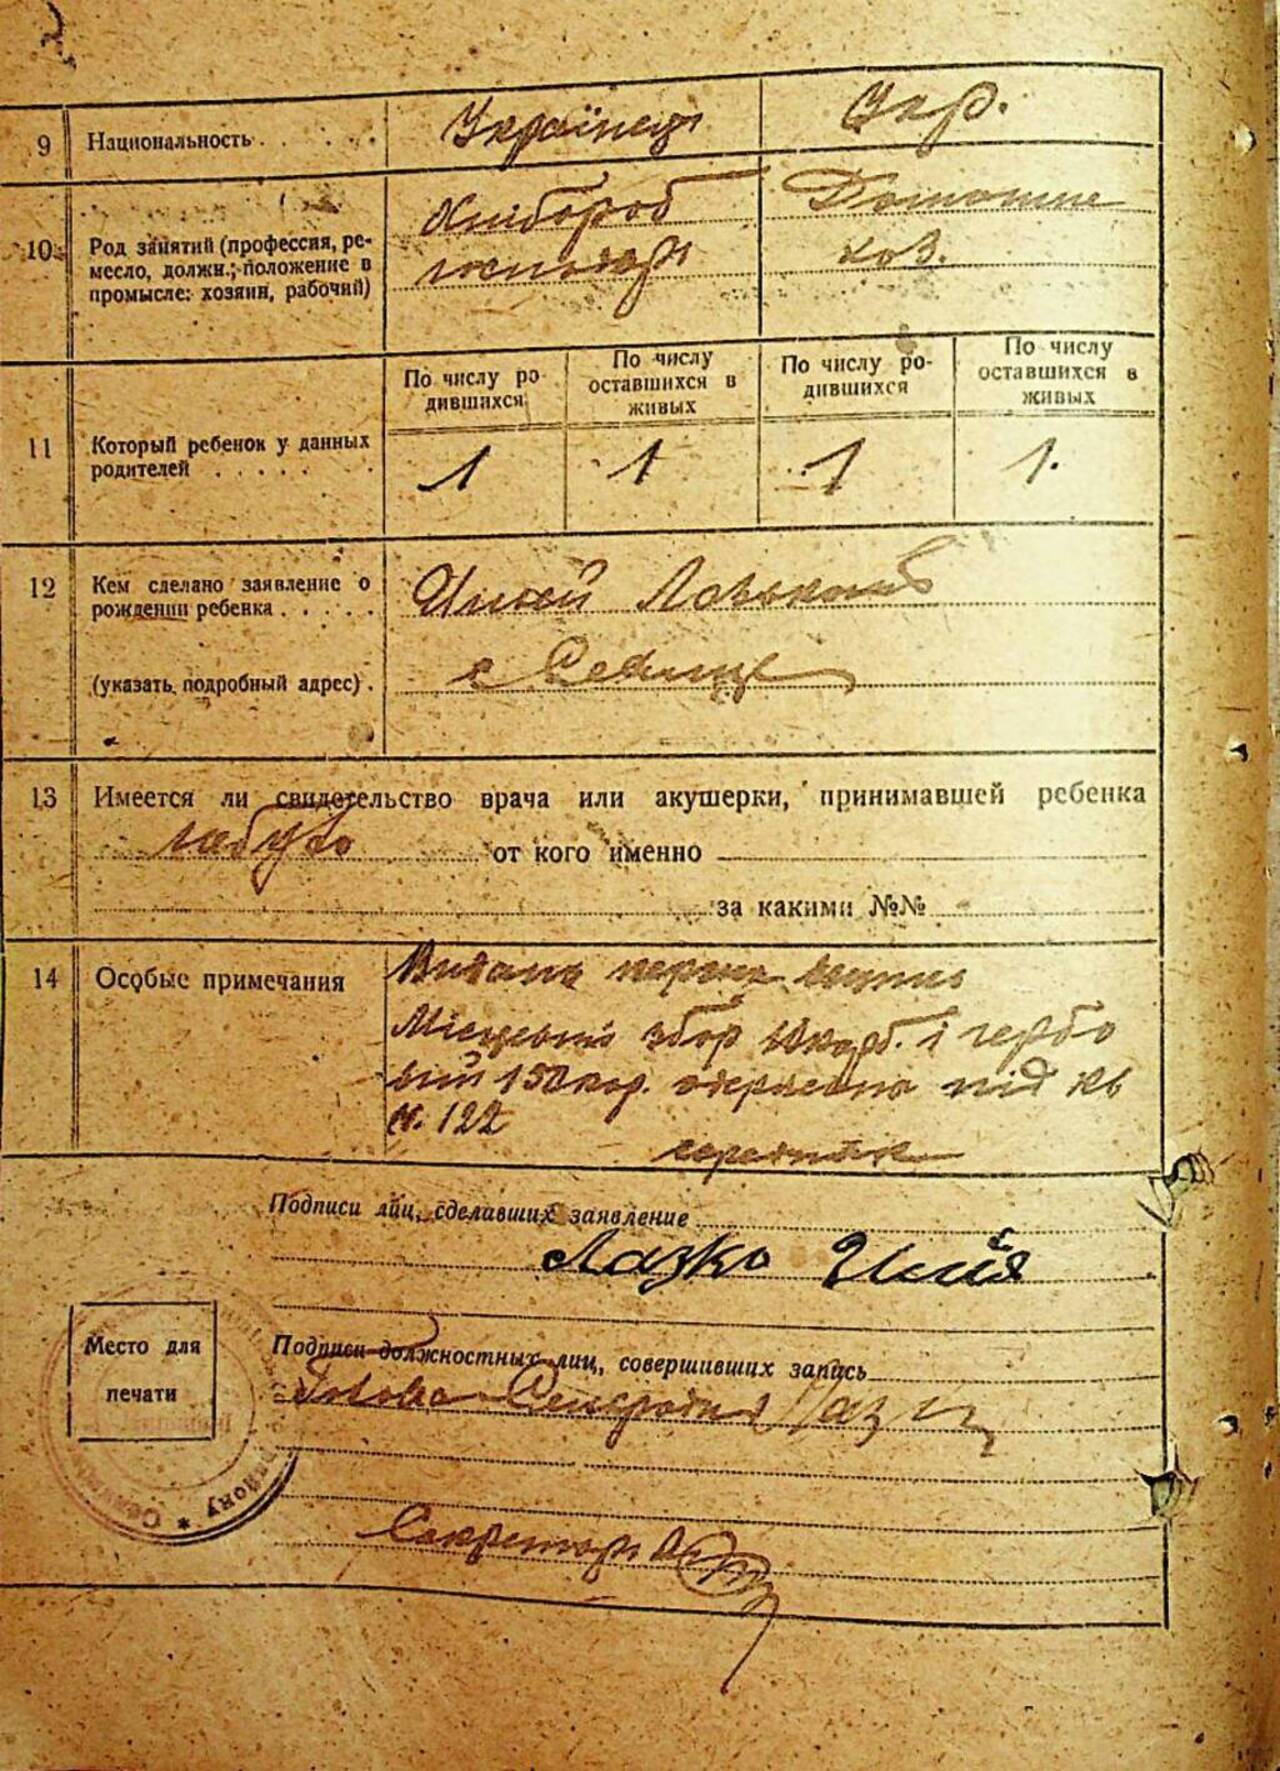 9 Национальность Українець Укр.
10 Род занятий (профессия, ре-
месло, должн.; положение в
промысле: хозяин, рабочий)
Хлібороб
господарь
Домашне
хоз.
11 Который ребенок у данных
родителей
По числу ро-
дившихся
По числу
оставшихся в
живых
По числу ро-
дившихся
По числу
оставшихся в
живых
1 1 1 1.
12 Кем сделано заявление о
рождении ребенка
(указать подробный адрес).
с
13 Имеется ли свидетельство врача или акушерки, принимавшей ребенка
небуло от кого именно
за какими №№
14 Особые примечания
Видана
Місцевий збор кар. і гербо
вий 150 кар. під кв
н. 122
середняк
Подписи лиц, сделавших заявление
Лазко
Место для
печати
Подписи должностных лиц, совершивших запись
Голова Сельради
Секретарь
району * С